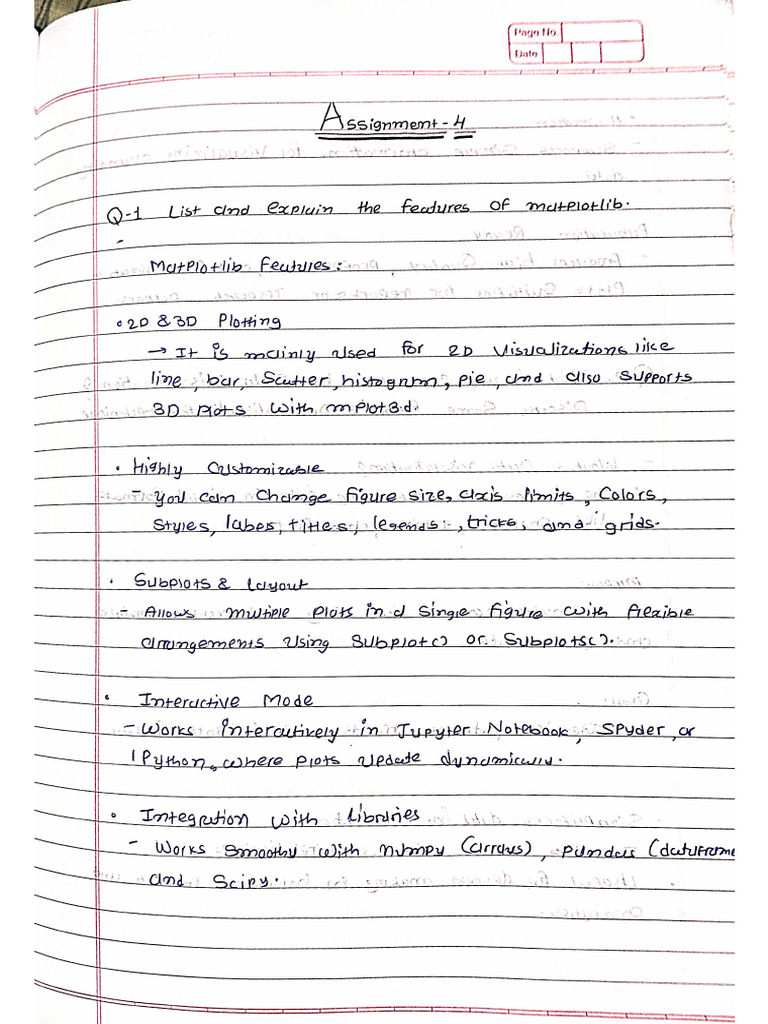 Page No.
Date
Assignment - 4
Q-1 List and explain the features of matplotlib.
-
Matplotlib features:
• 2D & 3D Plotting
→ It is mainly used for 2D visualizations like
line, bar, Scatter, histogram, pie, and also supports
3D plots with mplot3d.
• Highly Customizable
- you can change figure size, axis limits, Colors,
Styles, labes, titles, legends, tricks, and grids.
• Subplots & layout
- Allows multiple plots in a single figure with flexible
arrangements using Subplot() or Subplots().
• Interactive Mode
- Works interactively in Jupyter Notebook, Spyder, or
IPython, where plots update dynamically.
• Integration with Libraries
- Works smoothy with numpy (arraus), pandas (dataframe
and Scipy.